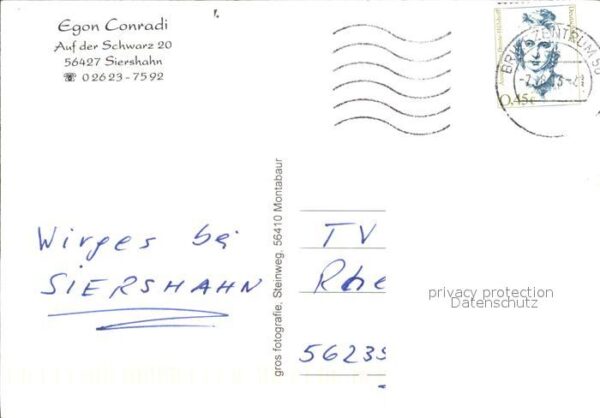 Egon Conradi
Auf der Schwarz 20
56427 Siershahn
☏ 02623-7592
0.45€
Wirges bei
SIERSHAHN
gros fotografie, Steinweg, 56410 Montabaur
TV
privacy protection
Datenschutz